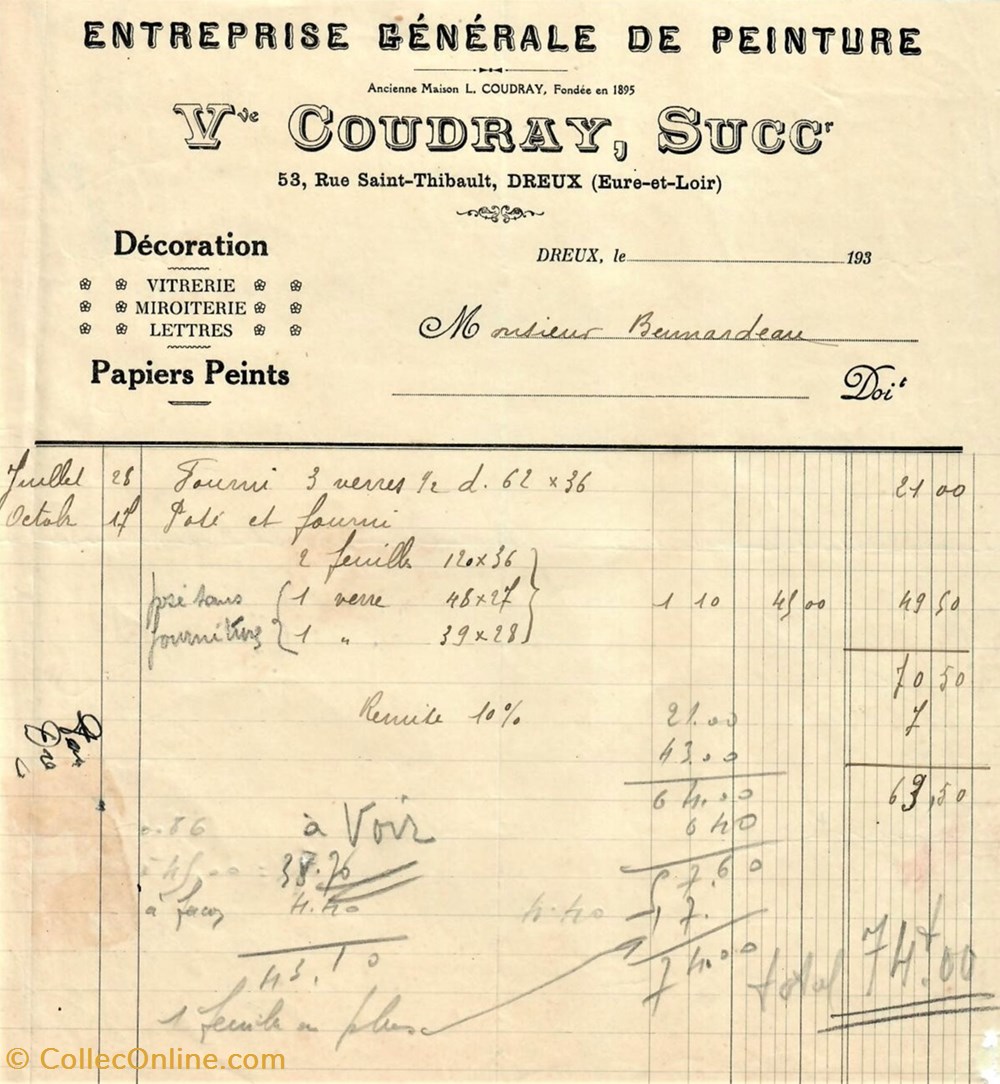 ENTREPRISE GÉNÉRALE DE PEINTURE
Ancienne Maison L. COUDRAY, Fondée en 1895
Vve COUDRAY, SUCCr
53, Rue Saint-Thibault, DREUX (Eure-et-Loir)
Décoration
VITRERIE
MIROITERIE
LETTRES
Papiers Peints
DREUX, le 193
Monsieur Bernardeau
Doit
Juillet 28 Fourni 3 verres 1/2 d. 62 x 36 21 00
Octob 17 Posé et fourni
2 feuilles 120 x 36
posé sans (1 verre 48 x 27 1 10 45 00 49 50
fourniture 1 " 39 x 28
70 50
Remise 10% 21.00 7
43.00
64.00 63,50
0.86 à Voir 6 40
45.00 = 38.70 57.60
à façon 4.40 4.40 17.
43.10 74.00 total 74f.00
1 feuille en plus
© CollecOnline.com